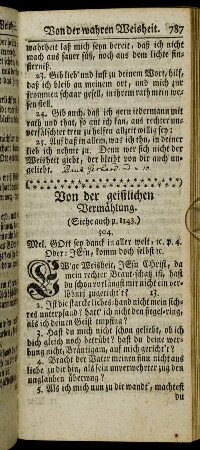 Von der wahren Weisheit. 787
wahrheit laß mich seyn bereit, daß ich nicht
mach aus sauer süß, noch aus dem lichte fins
sterniß.
23. Gib lieb' und lust zu deinem Wort, hilf,
daß ich bleib an meinem ort, und mich zur
frommen schaar gesell, in ihrem rath mein wes
sen stell.
24. Gib auch, daß ich gern jedermann mit
rath und that, so gut ich kan, aus rechter uns
verfälschter treu zu helfen allzeit willig sey:
25. Auf daß in allem, was ich thu, in deiner
lieb ich nehme zu. Denn wer sich nicht der
Weisheit giebt, der bleibt von dir auch uns
geliebt.
Von der geistlichen
Vermählung.
(Siehe auch p. 1143.)
504.
Mel. GOtt sey dank in aller welt, ꝛc. p. 4.
Oder: JEsu, komm doch selbst ꝛc.
EW'ge Weisheit, JEsu Christ, da
dein rechter Braut-schatz ist, hast
du schon vorlängst mir nicht ein ver
löbniß zugericht't?
2. Ist die starke liebes-hand nicht mein sichs
res unterpfand? Hab ich nicht den siegel-ring,
als ich deinen Geist empfing?
3. Hast du mir nicht schon geliebt, ob ich
dich gleich noch betrübt? hast du deine wer
bung nicht, Bräutigam, auf mich gericht't?
4. Bracht der Vater meinen sinn nicht aus
liebe zu dir hin, als sein unverwehrter zug den
unglauben überwog?
5. Als ich mich nun zu dir wandt', machtest
du